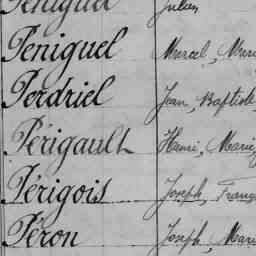 Peniguel Julien
Peniguel Marcel, Marie
Perdriel Jean, Baptiste
Périgault Henri, Marie
Périgois Joseph, Franç
Péron Joseph, Marie